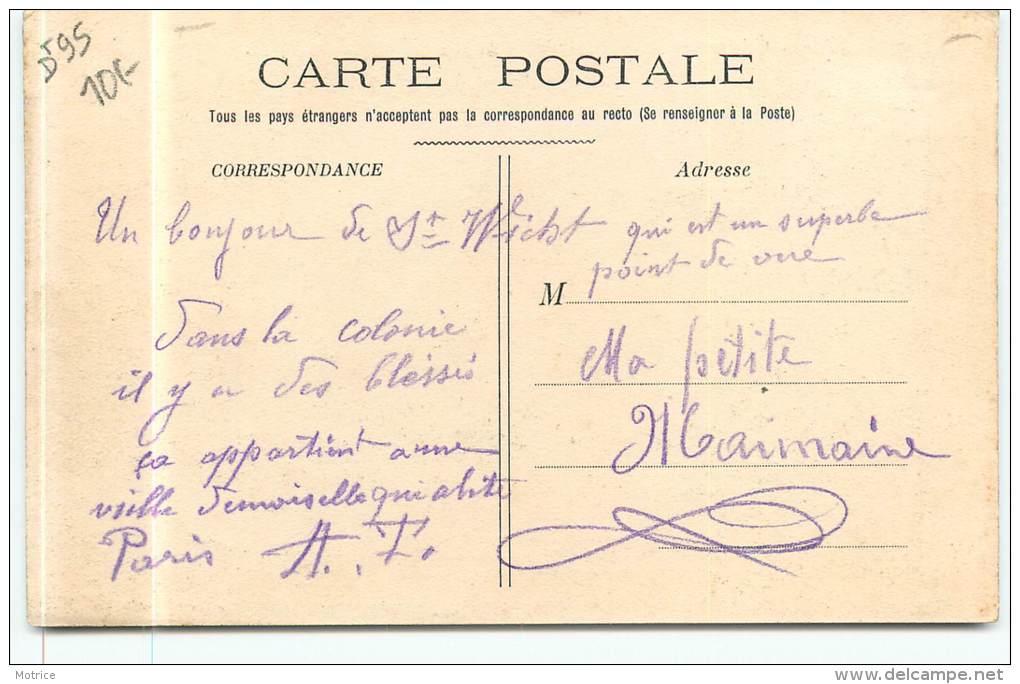 DT 95
10€
CARTE POSTALE
Tous les pays étrangers n'acceptent pas la correspondance au recto (Se renseigner à la Poste)
CORRESPONDANCE
Un bonjour de St qui est un superbe
point de vue
dans la colonie
il y a des blessés
ça appartient a une
vieille demoiselle qui abite
Paris A. F.
Adresse
M
Ma petite
Marmaine
Motrice
www.delcampe.net